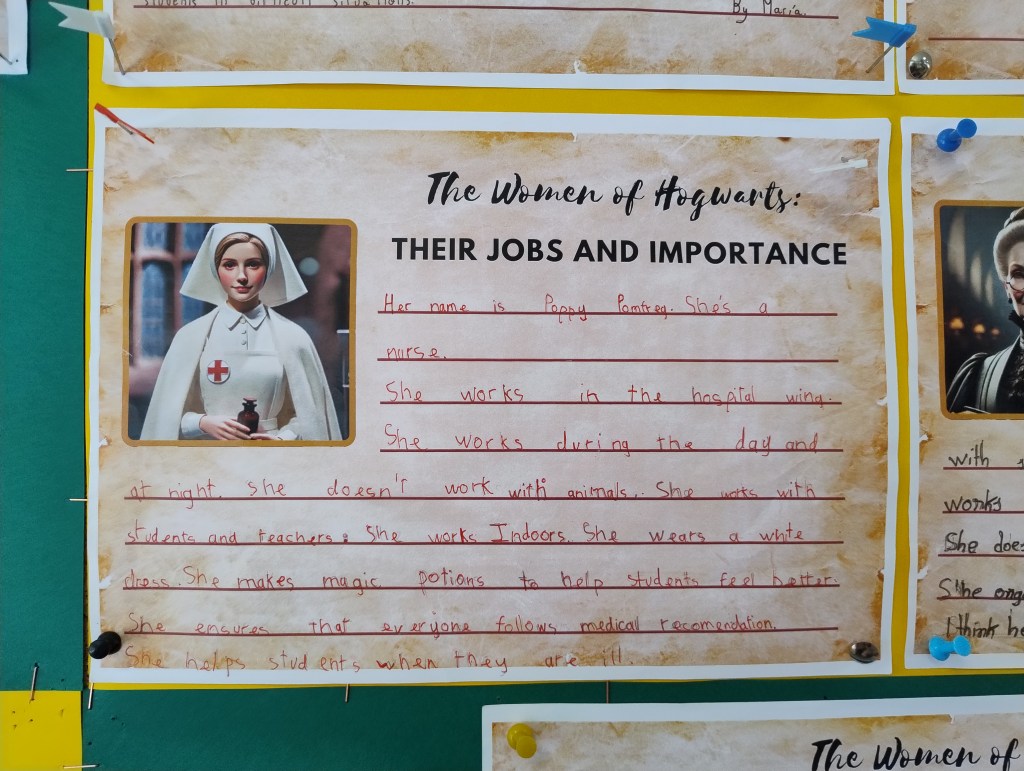 students in different situations.
By María.
The Women of Hogwarts:
THEIR JOBS AND IMPORTANCE
Her name is Poppy Pomfrey. She's a
nurse.
She works in the hospital wing.
She works during the day and
at night. She doesn't work with animals. She works with
students and teachers. She works Indoors. She wears a white
dress. She makes magic potions to help students feel better.
She ensures that everyone follows medical recomendation.
She helps students when they are ill.
with
works
She
S'he
I think
The Women of